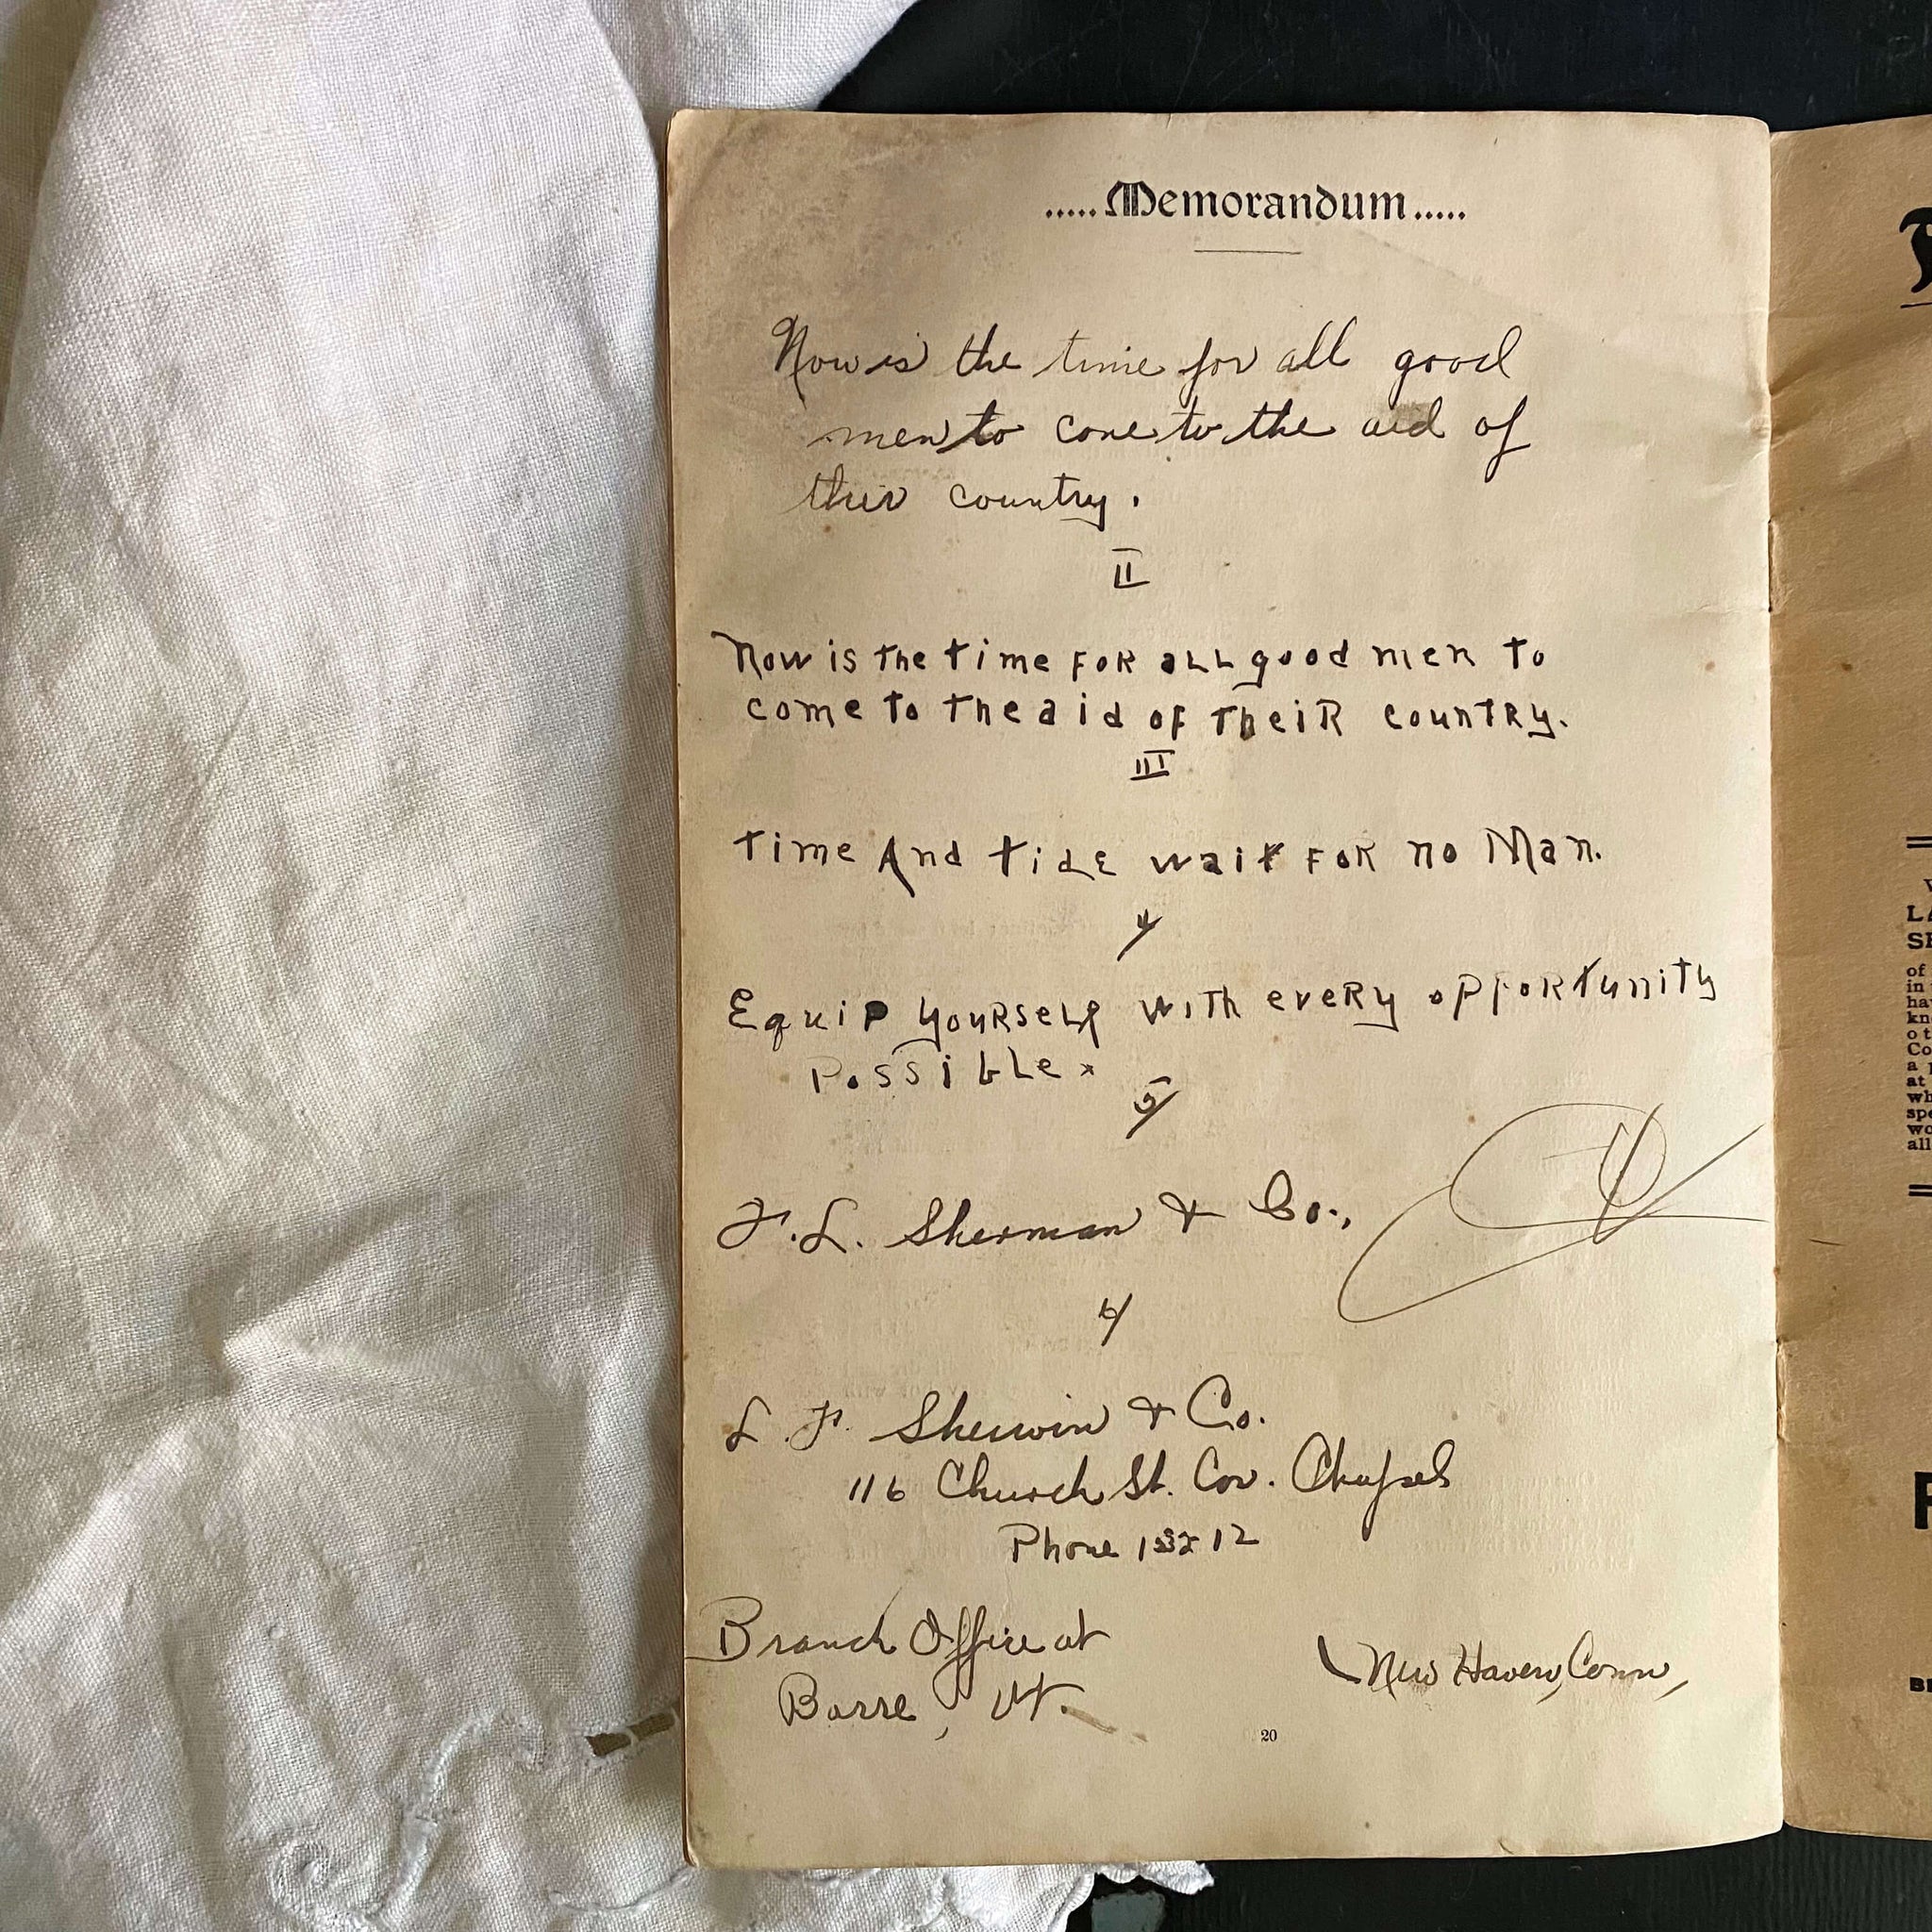 .....Memorandum.....
Now is the time for all good
men to come to the aid of
their country.
II
Now is the time FOR aLL good men to
come to the aid of TheiR countRy.
III
Time And tide wait FOR no Man.
4/
Equip YouRself with eveRy oppoRtunity
PossibLe.
5/
F. L. Sherman & Co.,
6/
L. F. Sherwin & Co.
116 Church St. Cor. Chapel
Phone
Branch Office at
Barre, Vt.
New Haven, Conn,
20
LA
SE
of
in
hav
kn
ot
Co
a
at
wh
spe
wo
all